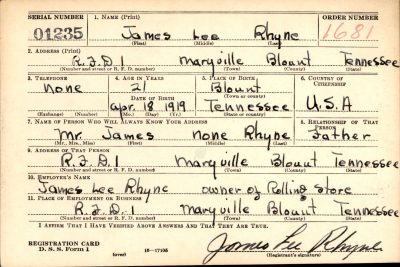 SERIAL NUMBER 1. NAME (Print) ORDER NUMBER
01235 James Lee Rhyne 1681
(First) (Middle) (Last)
2. ADDRESS (Print)
R.F.D.1 Maryville Blount Tennessee
(Number and street or R. F. D. number) (Town) (County) (State)
3. TELEPHONE 4. AGE IN YEARS 5. PLACE OF BIRTH 6. COUNTRY OF CITIZENSHIP
None 21 Blount
DATE OF BIRTH (Town or county)
Apr. 18 1919 Tennessee U.S.A
(Exchange) (No.) (Mo.) (Day) (Yr.) (State or country)
7. NAME OF PERSON WHO WILL ALWAYS KNOW YOUR ADDRESS 8. RELATIONSHIP OF THAT PERSON
Mr. James None Rhyne Father
(Mr., Mrs., Miss) (First) (Middle) (Last)
9. ADDRESS OF THAT PERSON
R.F.D.1 Maryville Blount Tennessee
(Number and street or R. F. D. number) (Town) (County) (State)
10. EMPLOYER'S NAME
James Lee Rhyne owner of Rolling Store
11. PLACE OF EMPLOYMENT OR BUSINESS
R.F.D.1 Maryville Blount Tennessee
(Number and street or R. F. D. number) (Town) (County) (State)
I AFFIRM THAT I HAVE VERIFIED ABOVE ANSWERS AND THAT THEY ARE TRUE.
REGISTRATION CARD
D. S. S. Form 1 (over) 16—17105 James Lee Rhyne
(Registrant's signature)